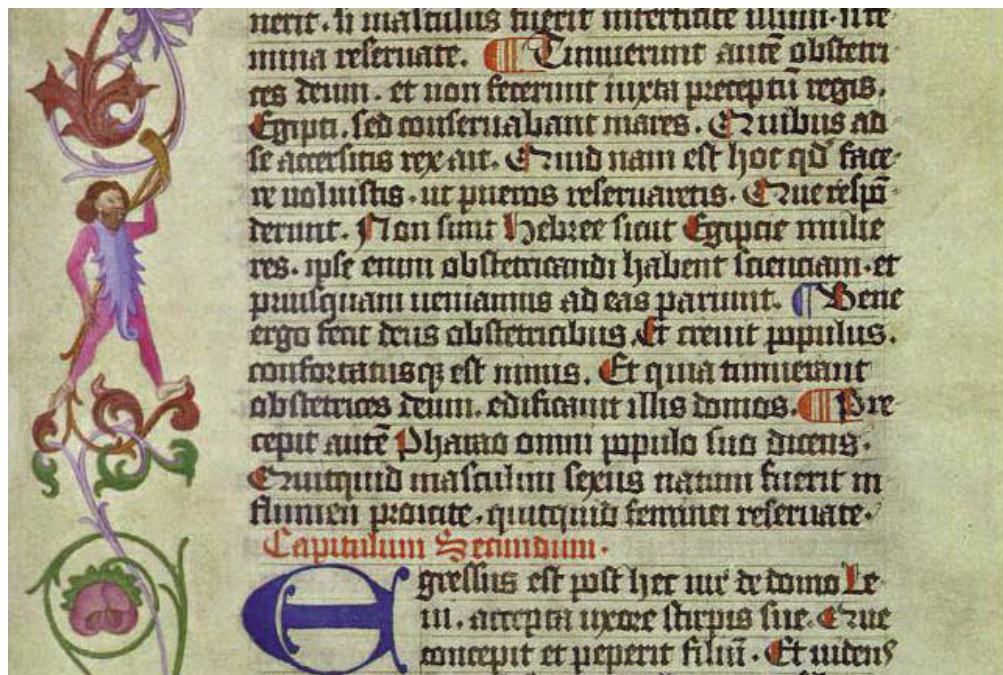 nerit. si masculus fuerit interficite illum. si fe
mina reseruate. Timuerunt autē obstetri
ces deum. et non fecerunt iuxta preceptū regis.
Egipti. sed conseruabant mares. Quibus ad
se accersitis rex ait. Quid nam est hoc qd̄ face-
re uoluistis. ut pueros reseruaretis. Que respō
derunt. Non sunt Hebree sicut Egipcie mulie
res. ipse enim obstetricandi habent scienciam. et
priusquam ueniamus ad eas pariunt. Bene
ergo fecit deus obstetricibus. Et creuit populus.
confortatusqꝫ est nimis. Et quia timuerant
obstetrices deum. edificauit illis domos. Pre-
cepit autē Pharao omni populo suo dicens.
Quitquid masculini sexus natum fuerit in
flumen proicite. quitquid feminei reseruate.
Capitulum Secundum.
Egressus est post hec uir de domo Le
ui. accepta uxore stirpis sue. Que
concepit et peperit filiū. Et uidens